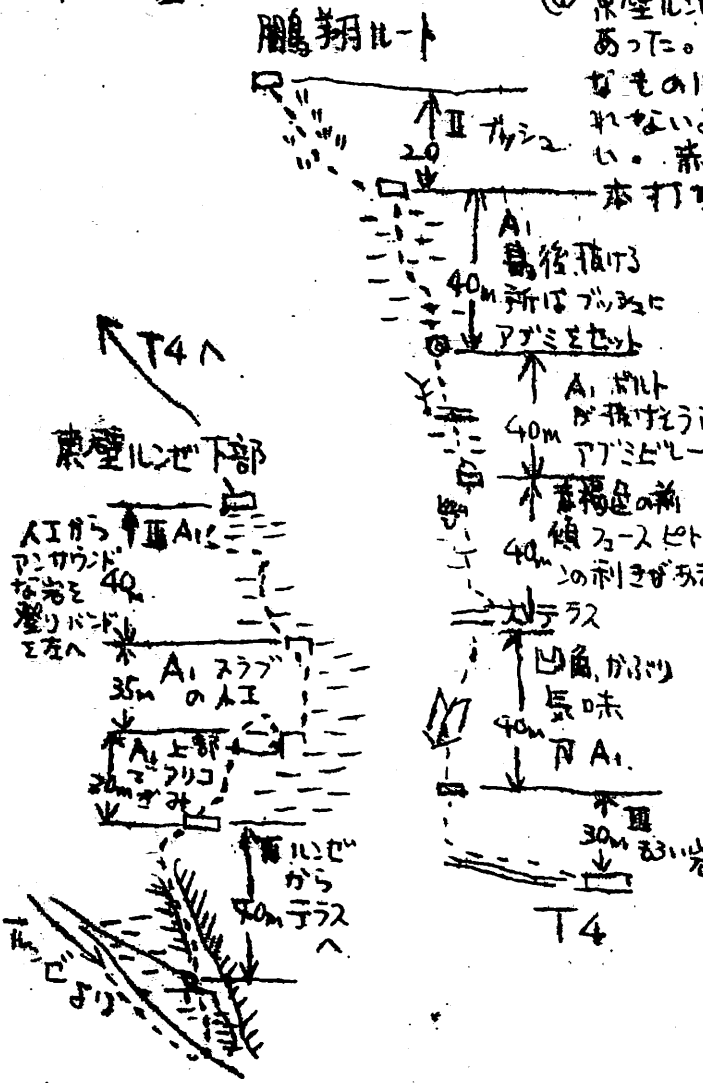 鵬翔ルート
東壁ルンゼ
あった。
なもの
れない
い。
本打
II ブッシュ
20
A1
最後抜ける
40m 所はブッシュに
アブミをセット
A1 ボルト
が抜けそう
40m
アブミビレー
の前
傾フェースピト
40m
ンの利きがあま
大テラス
凹角、かぶり
気味
40m
IV A1.
III
30m
もろい岩
T4
T4へ
東壁ルンゼ下部
人工から
アンサウンド
な岩を
登りバンド
を左へ
III A1
40m
A1 スラブ
の人工
35m
A1 上部
でフリコ
20m
ぎみ
III ルンゼ
から
40m テラス
へ
より